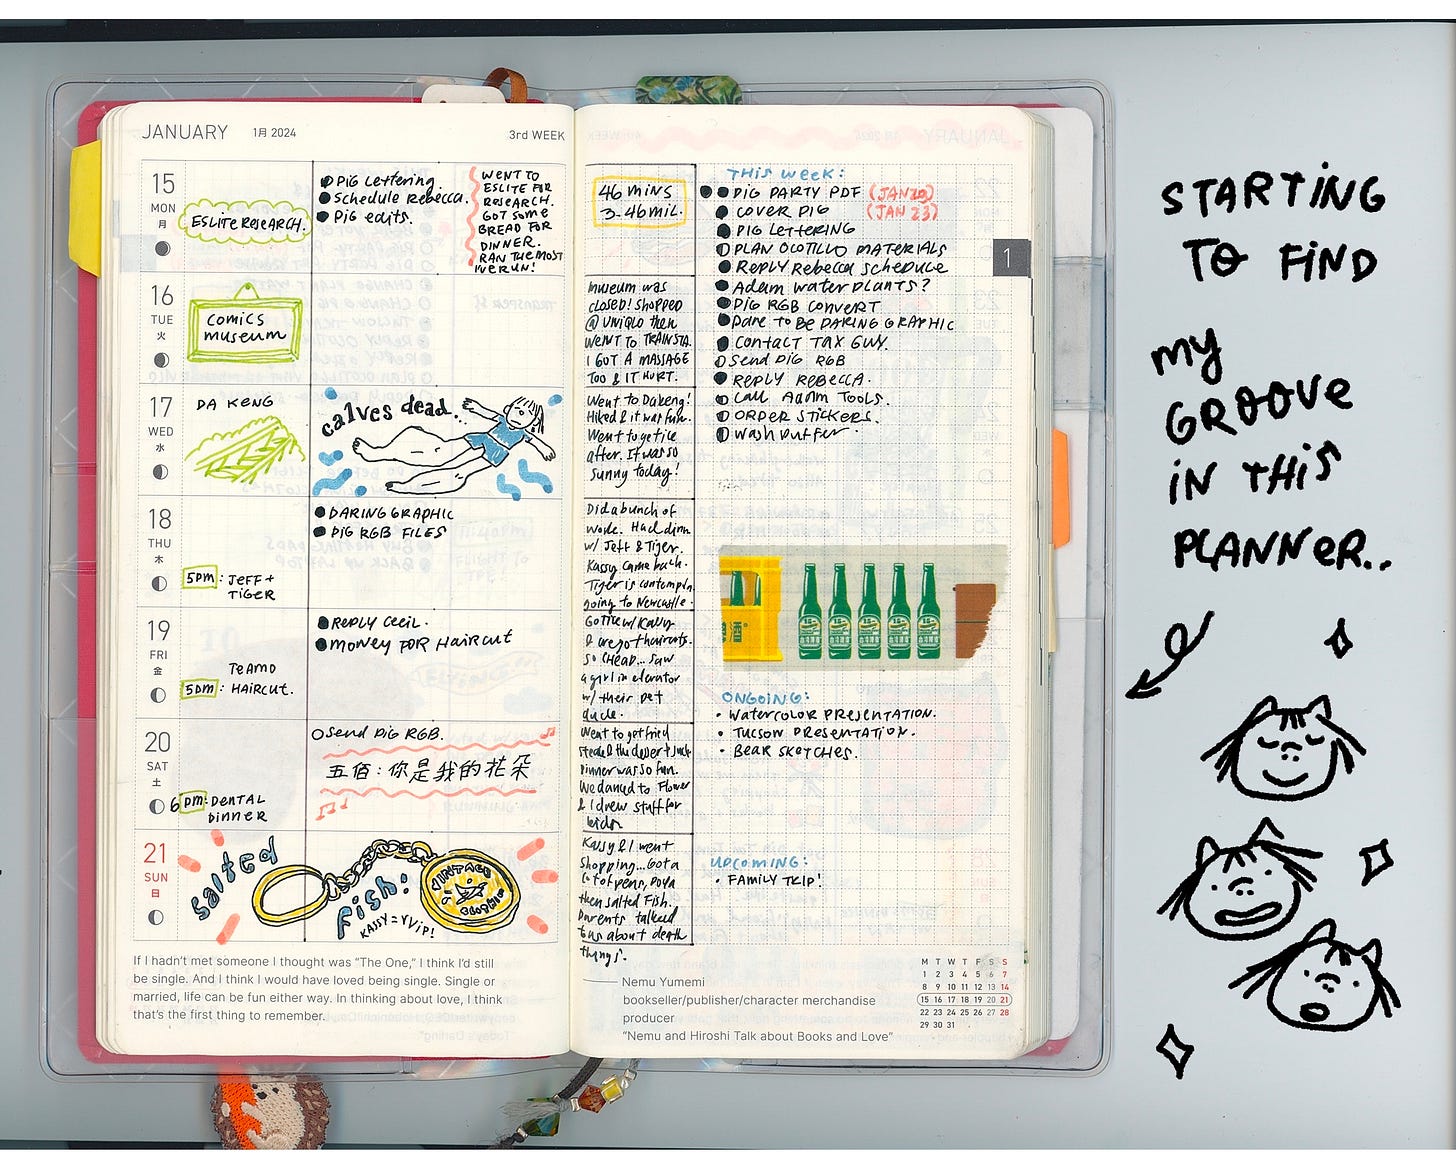 JANUARY 1月 2024 3rd WEEK
15
MON
月
ESLITE RESEARCH.
PIG Lettering.
Schedule Rebecca.
PIG edits.
WENT TO
ESLITE FOR
RESEARCH.
GOT SOME
BREAD FOR
DINNER.
RAN THE MOST
IVE RUN!
16
TUE
火
COMICS
museum
17
WED
水
DA KENG
calves dead...
18
THU
木
5PM: JEFF +
TIGER
DARING GRAPHIC
PIG RGB FILES
19
FRI
金
TEAMO
5PM: HAIRCUT.
REPLY CECIL.
MONEY FOR HAIRCUT
20
SAT
土
6PM: DENTAL
DINNER
Send PIG RGB.
五佰:你是我的花朵
21
SUN
日
Salted
Fish:
KASSY = YVIP!
VINTAGE
CLOTHING
If I hadn't met someone I thought was “The One,” I think I'd still
be single. And I think I would have loved being single. Single or
married, life can be fun either way. In thinking about love, I think
that's the first thing to remember.
46 MINS
3.46 mil.
museum was
closed! shopped
@ UNIQLO then
WENT TO TRAINSTA.
I GOT A MASSAGE
TOO & IT HURT.
Went to Dakeng!
Hiked & it was fun.
Went to get ice
after. It was so
sunny today!
Did a bunch of
work. Had dinn
w/ Jeff & Tiger.
Kassy came back.
Tiger is contempln
going to Newcastle.
Got ice w/ Kassy
& we got haircuts.
SO CHEAP... saw
a girl in elevator
w/ their pet
duck.
Went to get fried
steak & the dessert
Dinner was so fun.
We danced to Flower
& I drew stuff for
kids
Kassy & I went
shopping... Got a
lot of pens,
then salted Fish.
Parents talked
to us about death
things.
THIS WEEK:
PIG PARTY PDF (JAN 20)
COVER PIG (JAN 23)
PIG LETTERING
PLAN OCOTILLO MATERIALS
REPLY Rebecca Schedule
Adam water plants?
PIG RGB CONVERT
Dare to BE DARING GRAPHIC
Contact TAX GUY.
Send PIG RGB
REPLY REBECCA.
Call Adam Tools.
ORDER STICKERS.
Wash Puffer.
1
ONGOING:
• WATERCOLOR PRESENTATION.
• TUCSON PRESENTATION.
• BEAR SKETCHES.
UPCOMING:
• FAMILY TRIP!
Nemu Yumemi
bookseller/publisher/character merchandise
producer
“Nemu and Hiroshi Talk about Books and Love”
M T W T F S S
1 2 3 4 5 6 7
8 9 10 11 12 13 14
15 16 17 18 19 20 21
22 23 24 25 26 27 28
29 30 31
STARTING
TO FIND
my
GROOVE
IN THIS
PLANNER..